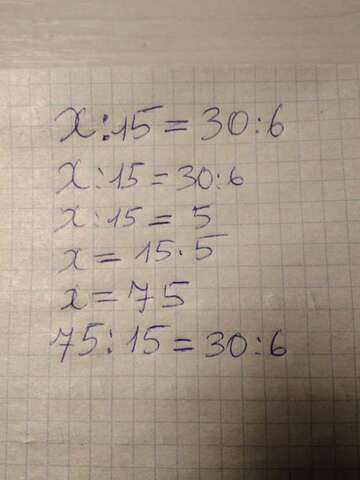 x:15=30:6
x:15=30:6
x:15=5
x=15·5
x=75
75:15=30:6